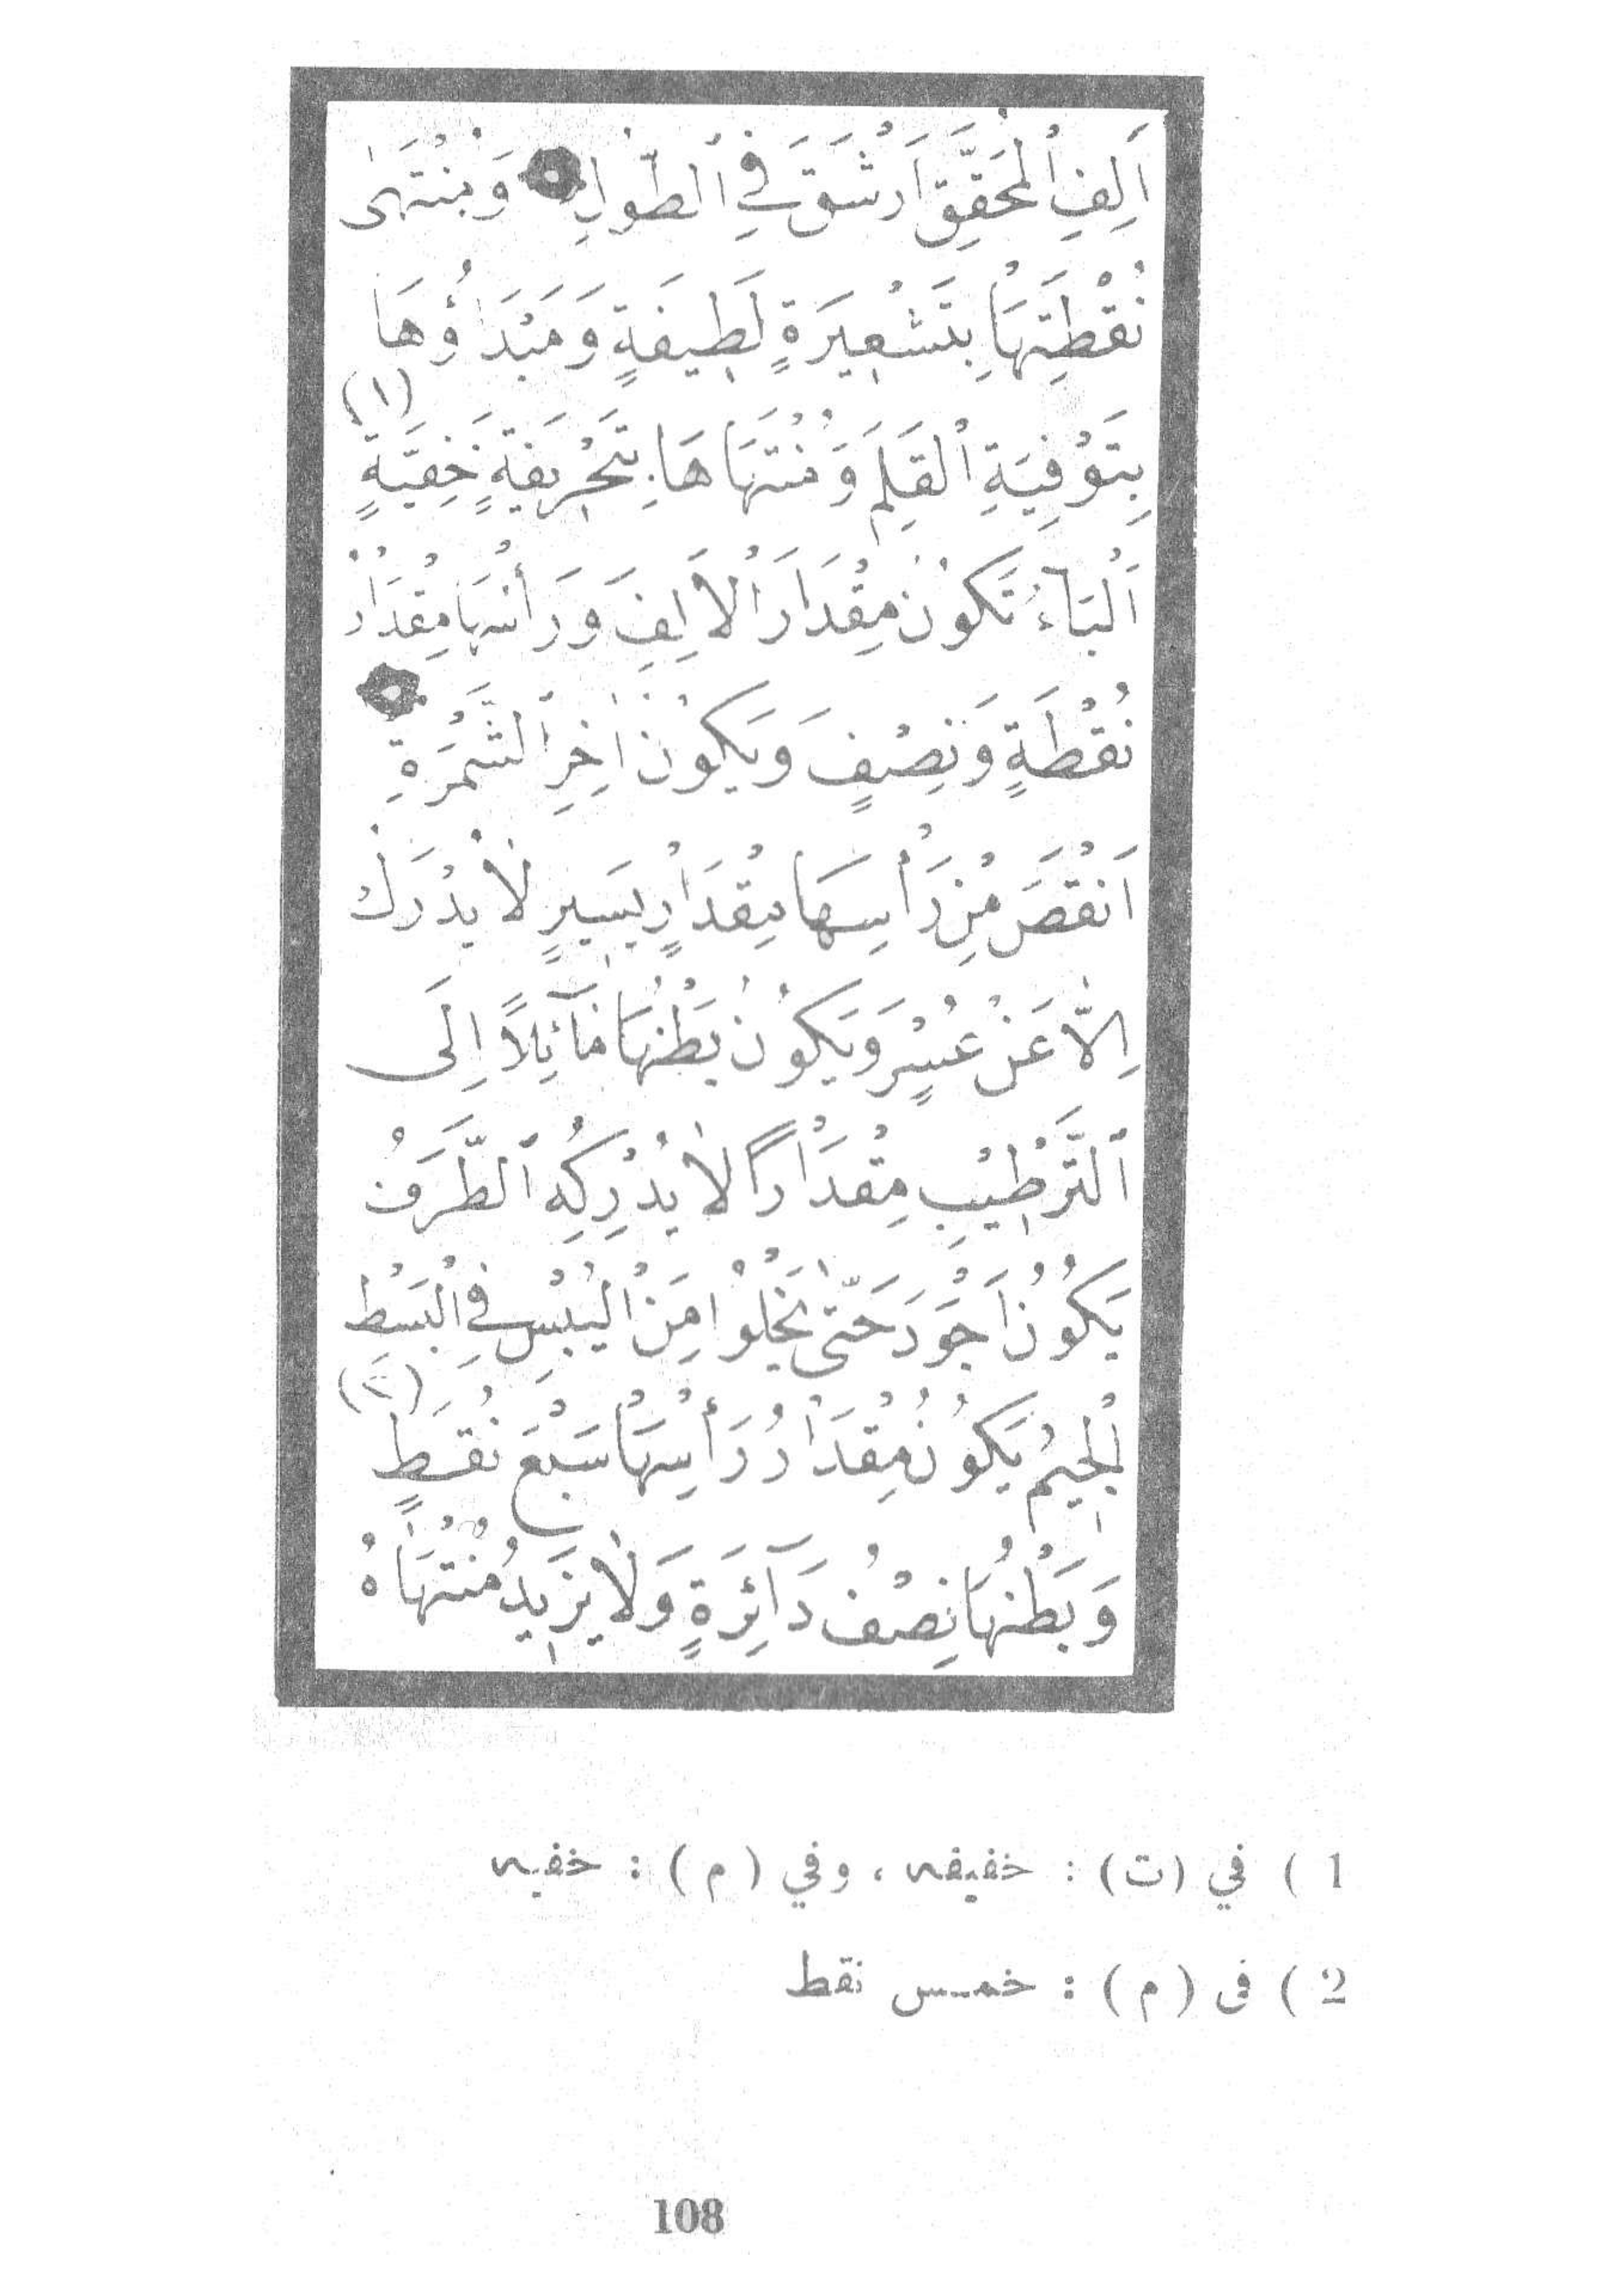 اَلِفِ ٱلْمُحَقَّقِ اَرْشَقَ فِي ٱلطُّوْلِ وَمُنْتَهَى
نُقْطَتِهَا بِتَشْعِيرَةٍ لَطِيفَةٍ وَمَبْدَاؤُهَا
بِتَوْفِيَةِ ٱلْقَلَمِ وَمُنْتَهَاهَا بِتَحْرِيفَةٍ خَفِيَّةٍ (١)
اَلْبَآءُ تَكُوْنُ مِقْدَارَ الْاَلِفِ وَرَأْسُهَا مِقْدَارُ
نُقْطَةٍ وَنِصْفٍ وَيَكُوْنُ اٰخِرُ ٱلثَّمَرَةِ
اَنْقَصَ مِنْ رَأْسِهَا مِقْدَارٍ يَسِيرٍ لَا يُدْرَكُ
اِلَّا عَنْ عُسْرٍ وَيَكُوْنُ بَطْنُهَا مَآئِلًا اِلَى
ٱلتَّرْطِيْبِ مِقْدَارًا لَا يُدْرِكُهُ ٱلطَّرَفُ
يَكُوْنُ اَجْوَدَ حَتّٰى يَخْلُوْا مِنَ الْيُبْسِ فِي الْبَسْطِ
اَلْجِيمُ يَكُوْنُ مِقْدَارُ رَأْسِهَا سَبْعَ نُقَطٍ (٢)
وَبَطْنُهَا نِصْفُ دَآئِرَةٍ وَلَا يَزِيدُ مُنْتَهَاهُ
1 ) في (ت) : خفيفه ، وفي ( م ) : خفيه
2 ) فى ( م ) : خمس نقط
108